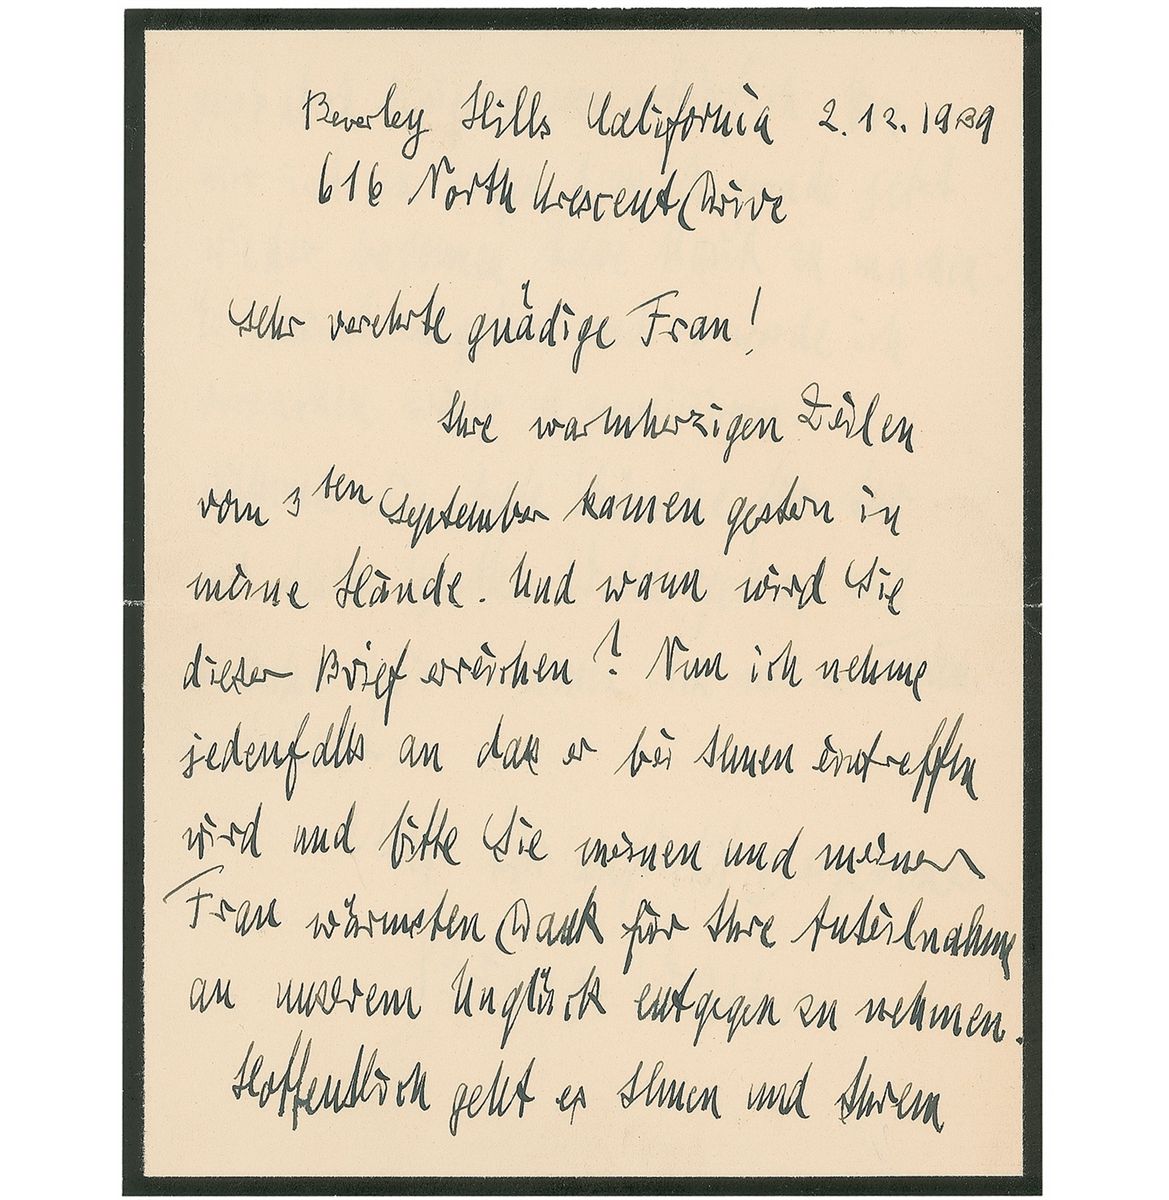 Beverley Hills California 2.12.1939
616 North Crescent Drive
Sehr verehrte gnädige Frau!
Ihre warmherzigen Zeilen
vom 3ten September kamen gestern in
meine Hände. Und wann wird Sie
dieser Brief erreichen? Nun ich nehme
jedenfalls an dass er bei Ihnen eintreffen
wird und bitte Sie meinen und meiner
Frau wärmsten Dank für Ihre Anteilnahme
an unserem Unglück entgegen zu nehmen.
Hoffentlich geht es Ihnen und Ihrem